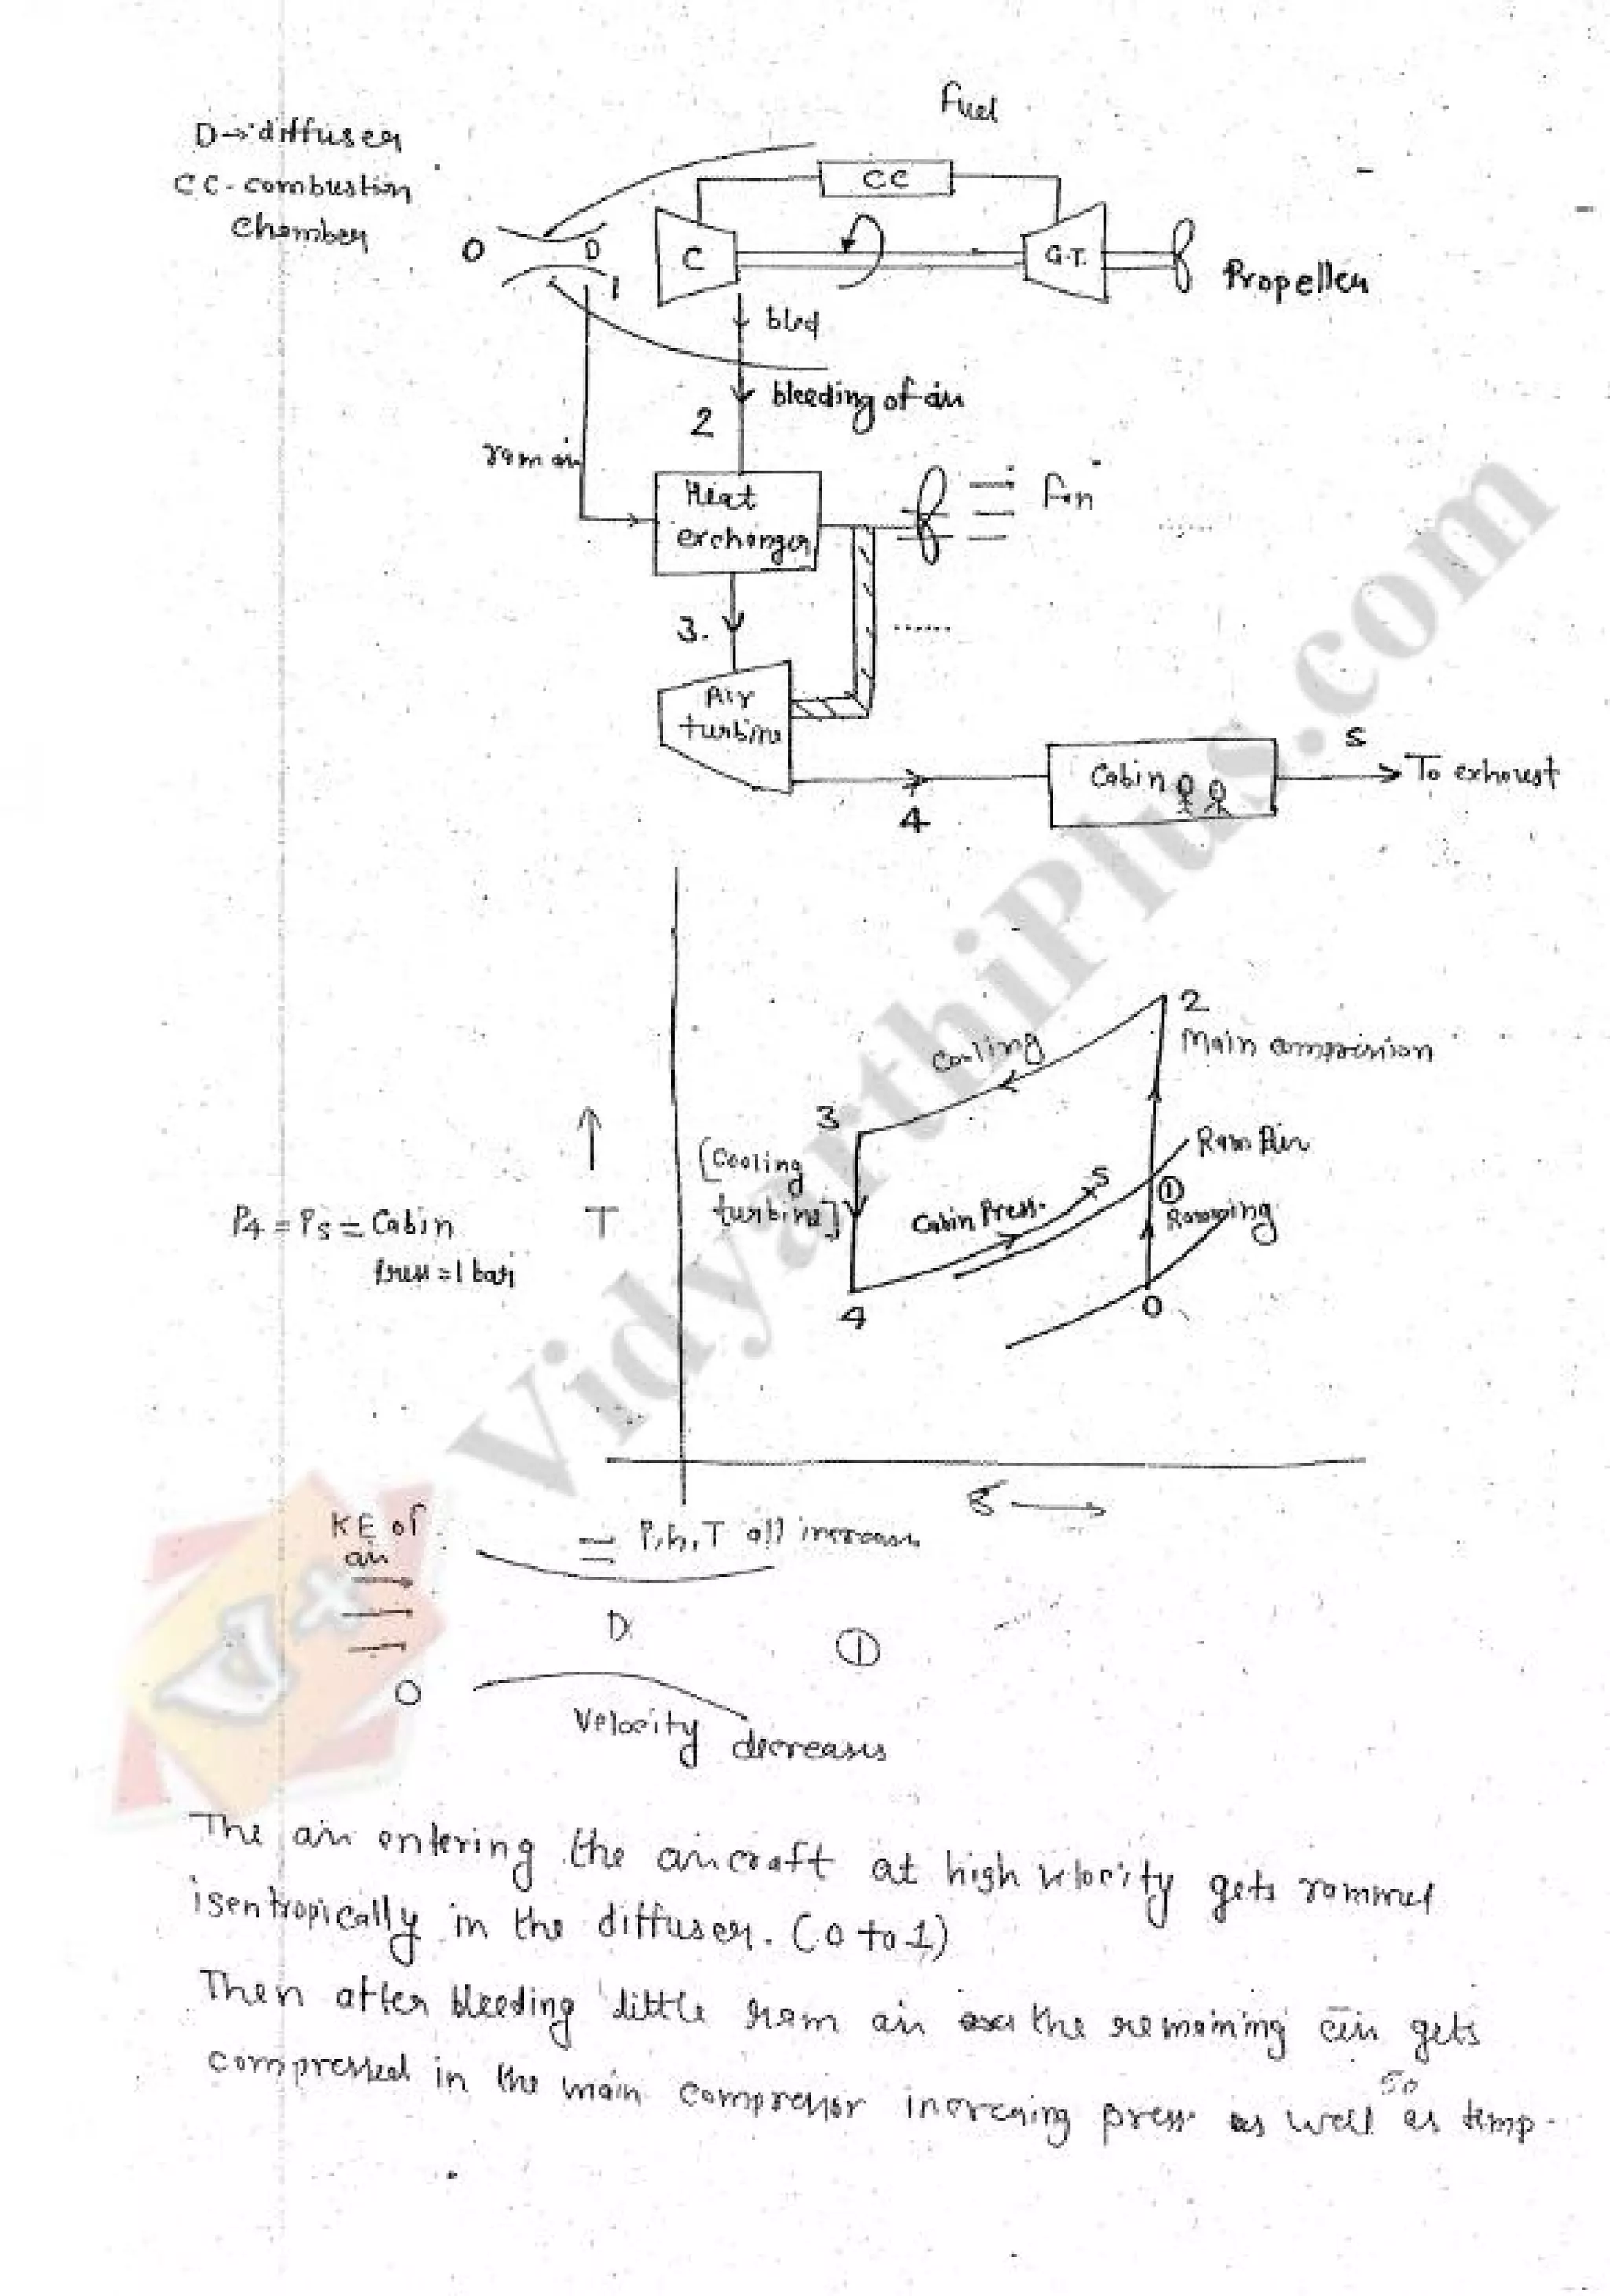 Fuel
D→diffuser
CC-combustion
chamber
CC
O
D
1
C
G.T.
Propeller
bled
bleeding of air
2
ram air
Heat
exchanger
Fan
3.
Air
turbine
4
Cabin
5
To exhaust
2
Main compression
Cooling
3
Ram Air
[Cooling
turbine]
5
1
Ramming
Cabin Press.
P4 = P5 = Cabin
Press = 1 bar
T
4
0
S
KE of
air
P, h, T all increases
D
1
O
Velocity decreases
The air entering the aircraft at high velocity gets rammed
isentropically in the diffuser. (0 to 1)
Then after bleeding little ram air the remaining air gets
compressed in the main compressor increasing press. as well as temp.
50
VidyarthiPlus.com
V+